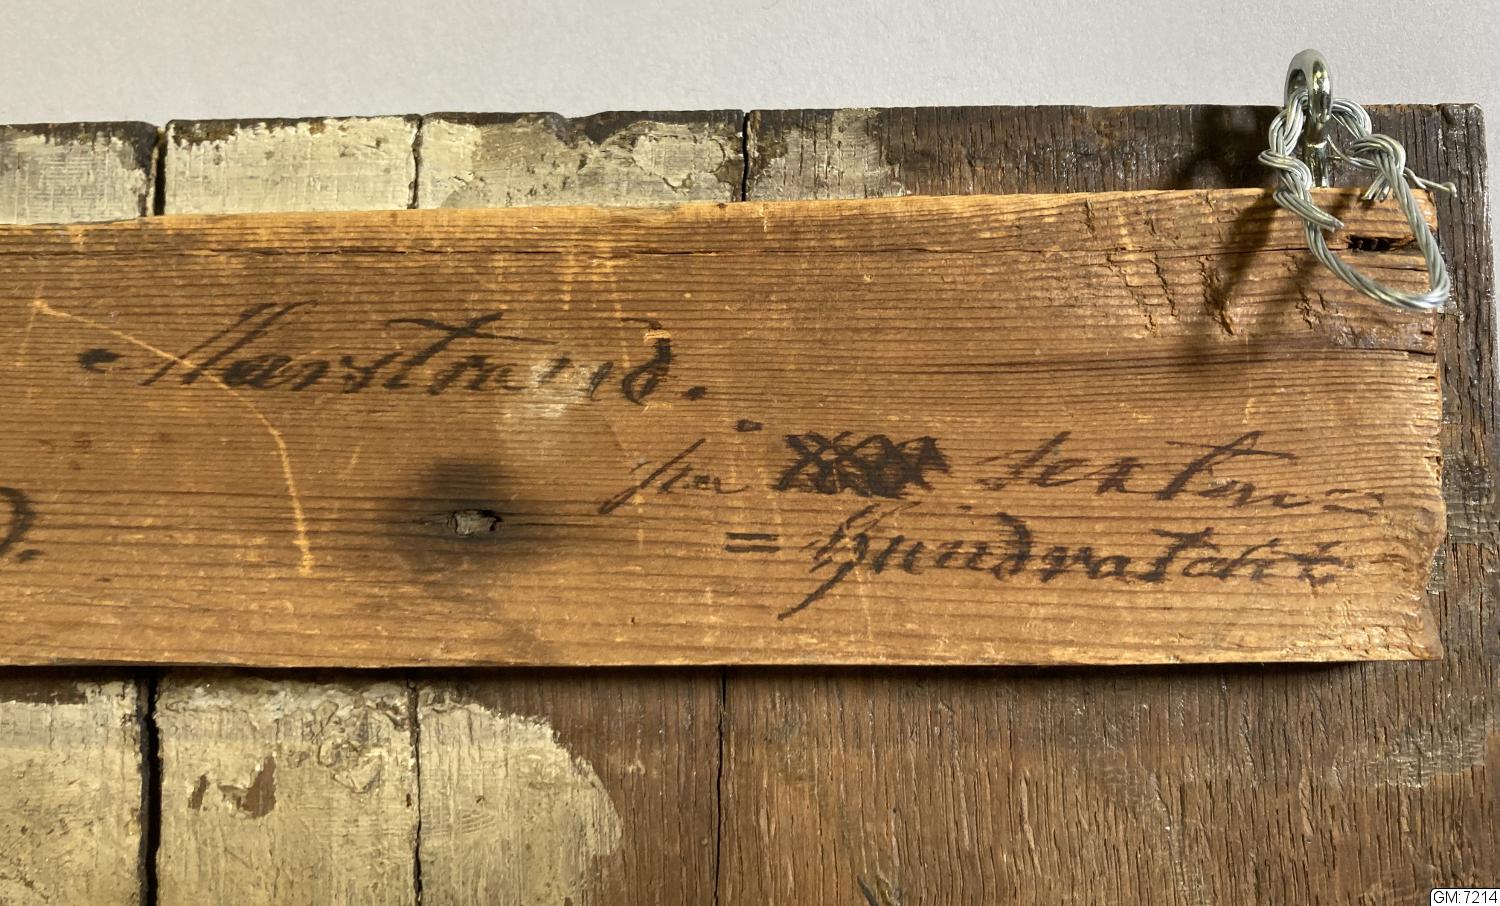 Marstrand.
på Sexton=
=hundratalet
GM:7214